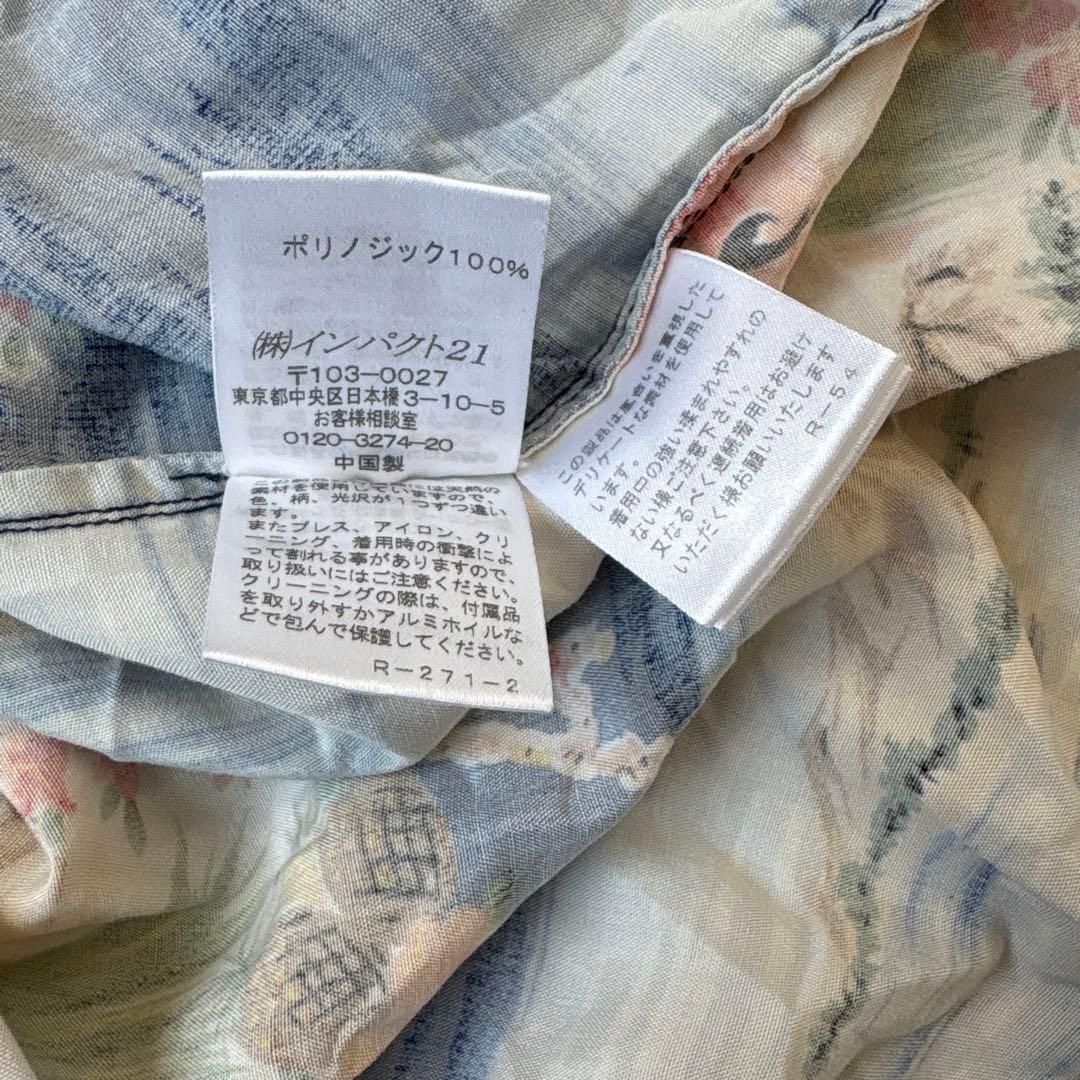 ポリノジック100%
(株)インパクト21
〒103-0027
東京都中央区日本橋3-10-5
お客様相談室
0120-3274-20
中国製
素材を使用していますので、
色、柄、光沢が1つずつ違い
ます。
またプレス、アイロン、クリ
ーニング、着用時の衝撃によ
って割れる事がありますので、
取り扱いにはご注意ください。
クリーニングの際は、付属品
を取り外すかアルミホイルな
どで包んで保護してください。
R-271-2
この製品は風合いを重視した
デリケートな素材を使用して
います。
着用口の強い揉まれやすれの
ない様ご注意下さい。
又なるべく連続着用はお避け
いただく様お願いいたします
R-54